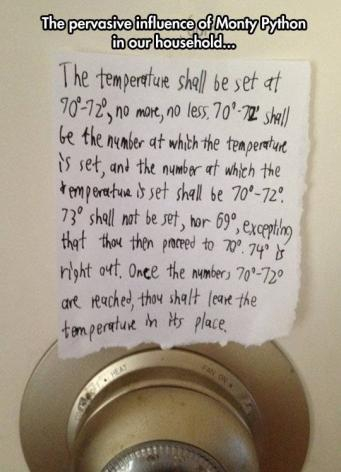 The pervasive influence of Monty Python
in our household...
The temperature shall be set at
70°-72°, no more, no less. 70°-72° shall
be the number at which the temperature
is set, and the number at which the
temperature is set shall be 70°-72°.
73° shall not be set, nor 69°, excepting
that thou then proceed to 70°. 74° is
right out. Once the numbers 70°-72°
are reached, thou shalt leave the
temperature in its place.
HEAT
FAN ON